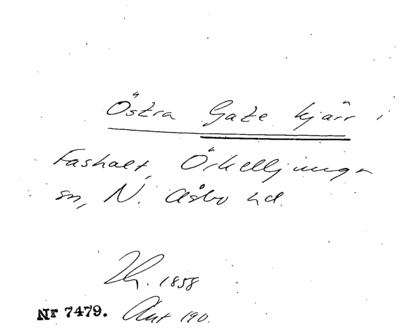 Östra Gate kjärr i
Fashalt, Örkelljunga
sn, N. Åsbo hd.
1858
Nr 7479. Aut 190.